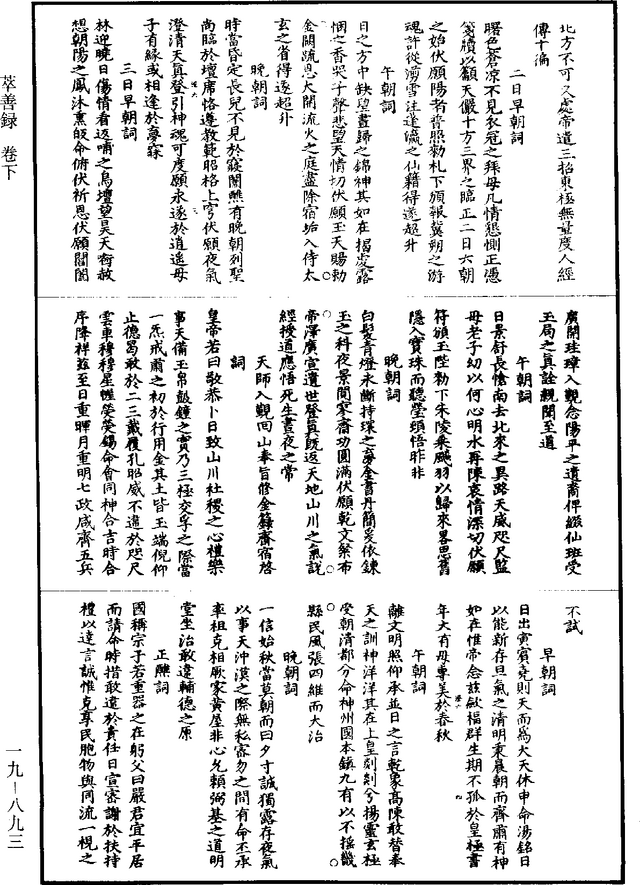 北方不可久處帝遣三招東極無量度人經
傳十徧
二日早朝詞
曙色蒼涼不見衣冠之拜母凡情怨惻正憑
箋牘以顧天儼十方三界之臨正二日六朝
之始伏願陽耆普照勑札下頒報冀朔之游
魂許從溺雪注蓬瀛之仙籍得遂超升
午朝詞
日之方中缺望晝歸之錦神其如在揭虔露
悃之香哭子聲悲望天情切伏願玉天賜勑
金闕流恩大開流火之庭盡除宿垢入侍太
玄之省得逐超升
晚朝詞
時當昏定長兒不見於寢闈醮有晚朝列聖
尚臨於壇席恪遵教範昭格上穹伏願夜氣
澄清天真登引神魂可度願永遂於逍遙母
子有緣或相逢於夢寐
三日早朝詞
林迎曉日傷情看返哺之烏壇望昊天有赦
想朝陽之鳳沐熏皈命俯伏祈恩伏願閶闔
廣開珪璋入覲念陽平之遺裔俾綴仙班受
玉局之真詮親聞至道
午朝詞
日景舒長愴南去北來之異路天威咫尺監
母老子幼以何心明水再陳哀情深切伏願
符頒玉陛勑下朱陵乘飈羽以歸來畧思舊
隱入寶珠而聽瑩頓悟昨非
晚朝詞
白髮青燈永斷持環之夢金書丹簡爰依鍊
玉之科夜景闃寥齋功圓滿伏願乾文縈布
帝澤廣宣遺世登真既返天地山川之氣說
經授道應悟死生晝夜之常
天師入覲回山奉旨修金籙齋宿啓
詞
皇帝若曰敬恭卜日致山川社稷之心禮樂
事天備玉帛鼓鐘之實乃三極交孚之際當
一炁戒肅之初於行用金其土皆玉端倪仰
止德曷敢於二三戴履孔昭威不違於咫尺
雲車穆穆星幢熒熒錫命會同神合吉時合
序降祥茲至日重暉月重明七政咸齊五兵
不試
早朝詞
日出寅賓堯則天而爲大天休申命湯銘日
以能新存旦氣之清明秉晨朝而齊肅有神
如在惟帝念茲斂福群生期不孤於皇極書
年大有毋專美於春秋
午朝詞
離文明照仰承並日之言乾象高陳敢替奉
天之訓神洋洋其在上皇剡剡兮揚靈玄極
受朝清都分命神州國本鎮九有以不搖畿
縣民風張四維而大治
晚朝詞
一信始秋當莫朝而曰夕寸誠獨露存夜氣
以事天沖漠之際無私宥勿之間有命丕承
率祖克相厥家黃屋非心允賴弼基之道明
堂坐治敢違輔德之原
正醮詞
國稱宗子若重器之在躬父曰嚴君宜平居
而請命時措敢違於責任日宣審謝於扶持
禮以達言誠惟克享民胞物與同流一視之
萃善録　卷下
一九—八九三